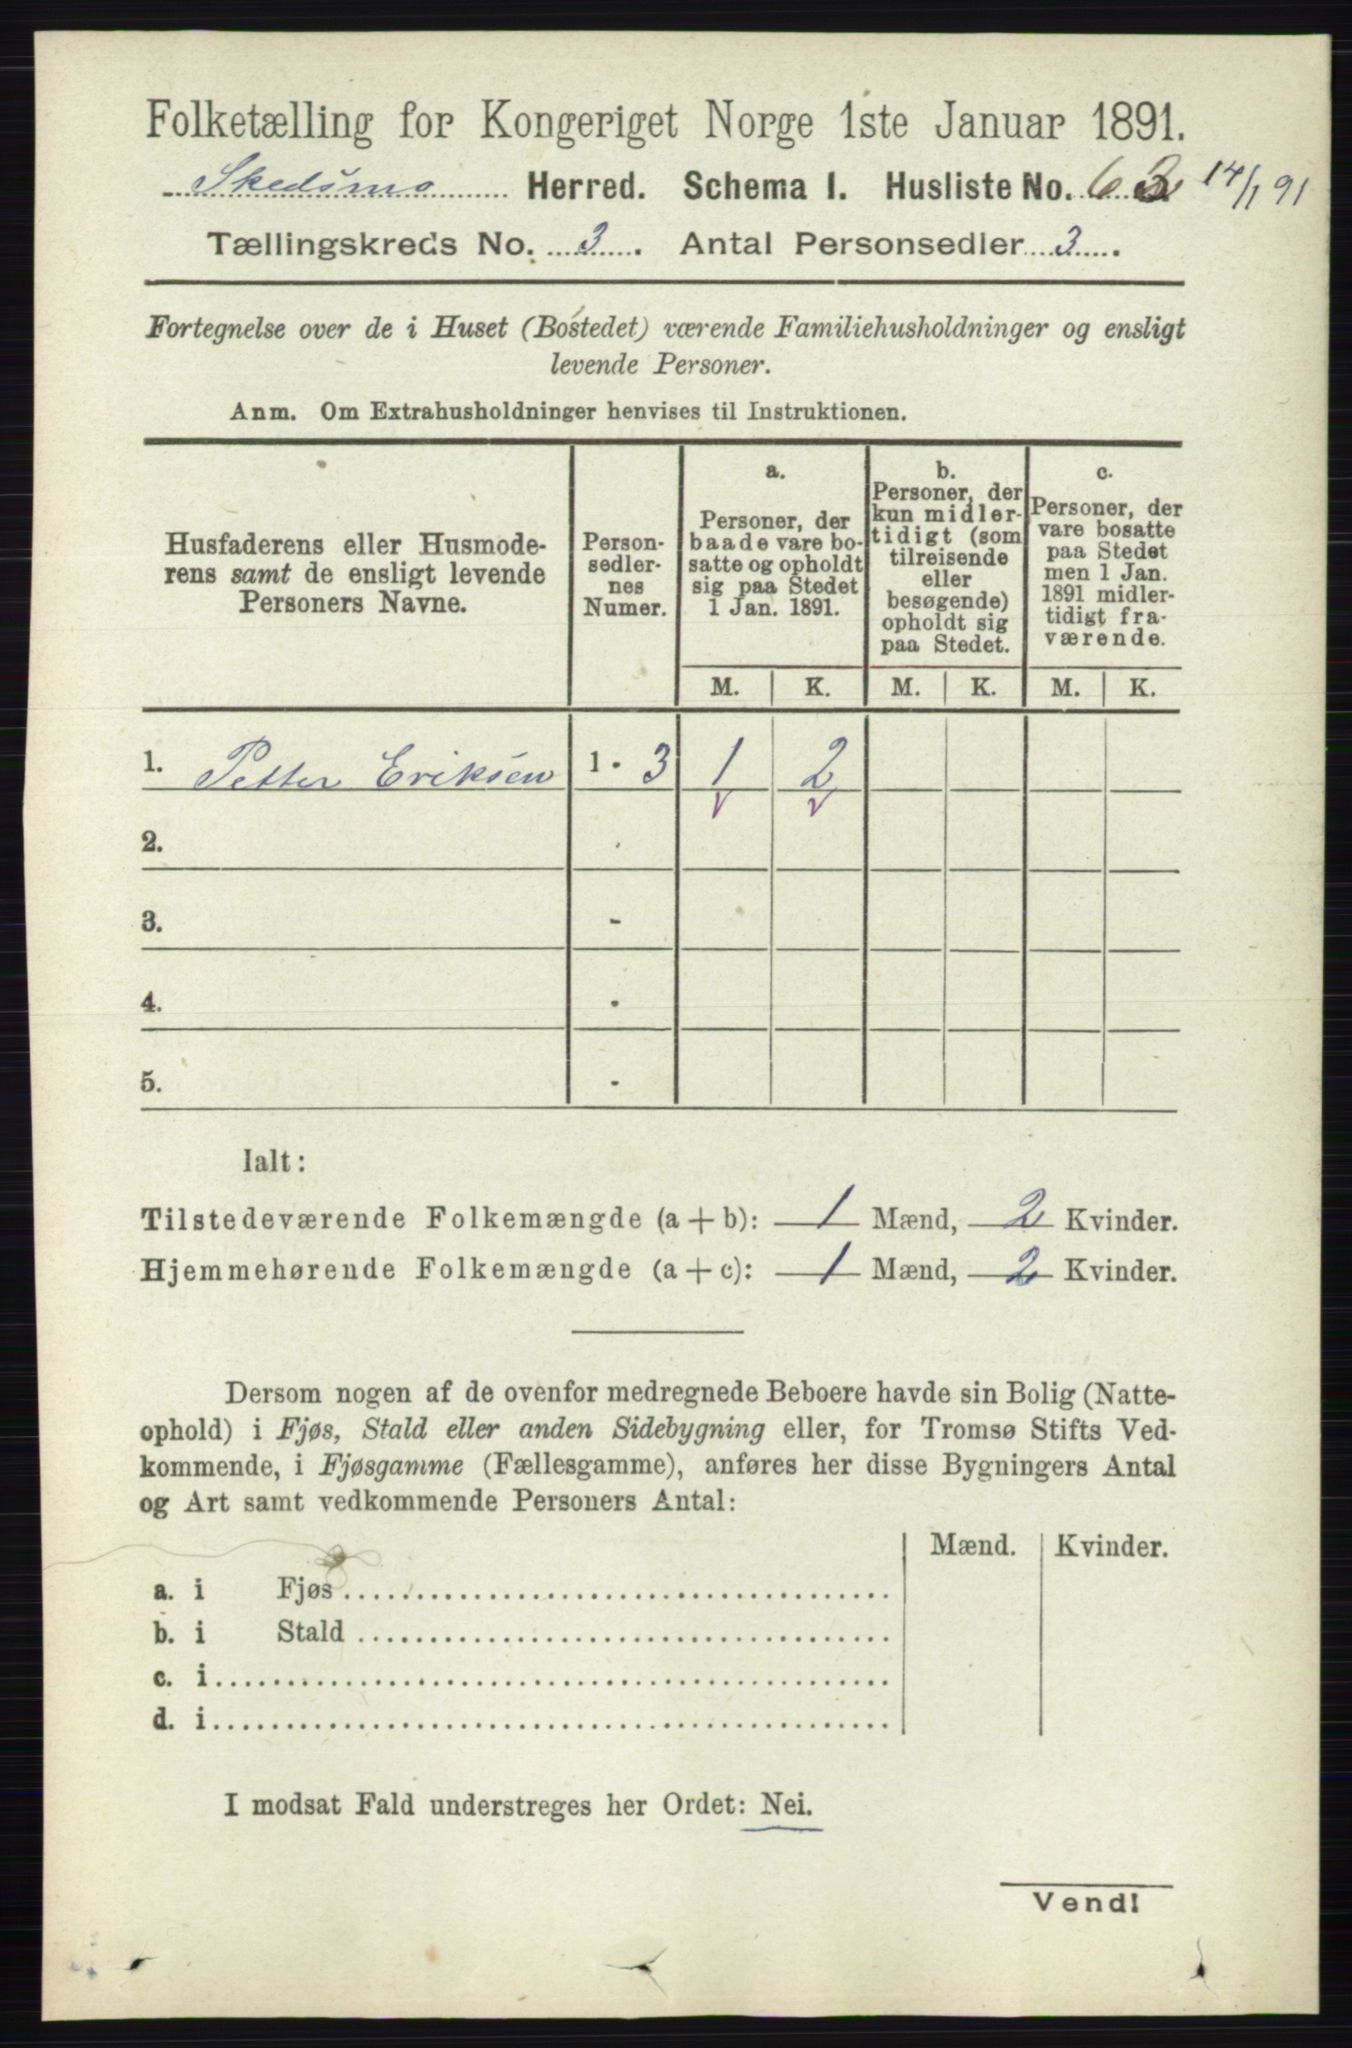 Folketælling for Kongeriget Norge 1ste Januar 1891.
Skedsmo Herred. Schema I. Husliste No. 63 14/1 91
Tællingskreds No. 3. Antal Personsedler 3.
Fortegnelse over de i Huset (Bostedet) værende Familiehusholdninger og ensligt
levende Personer.
Anm. Om Extrahusholdninger henvises til Instruktionen.
Husfaderens eller Husmode-
rens samt de ensligt levende
Personers Navne.
Person-
sedler-
nes
Numer.
a.
Personer, der
baade vare bo-
satte og opholdt
sig paa Stedet
1 Jan. 1891.
b.
Personer, der
kun midler-
tidigt (som
tilreisende
eller
besøgende)
opholdt sig
paa Stedet.
c.
Personer, der
vare bosatte
paa Stedet
men 1 Jan.
1891 midler-
tidigt fra-
værende.
M. K. M. K. M. K.
1. Petter Eriksen 1 - 3 1 2
2. -
3. -
4. -
5. -
Ialt:
Tilstedeværende Folkemængde (a + b): 1 Mænd, 2 Kvinder.
Hjemmehørende Folkemængde (a + c): 1 Mænd, 2 Kvinder.
Dersom nogen af de ovenfor medregnede Beboere havde sin Bolig (Natte-
ophold) i Fjøs, Stald eller anden Sidebygning eller, for Tromsø Stifts Ved-
kommende, i Fjøsgamme (Fællesgamme), anføres her disse Bygningers Antal
og Art samt vedkommende Personers Antal:
Mænd. Kvinder.
a. i Fjøs
b. i Stald
c. i
d. i
I modsat Fald understreges her Ordet: Nei.
Vend!